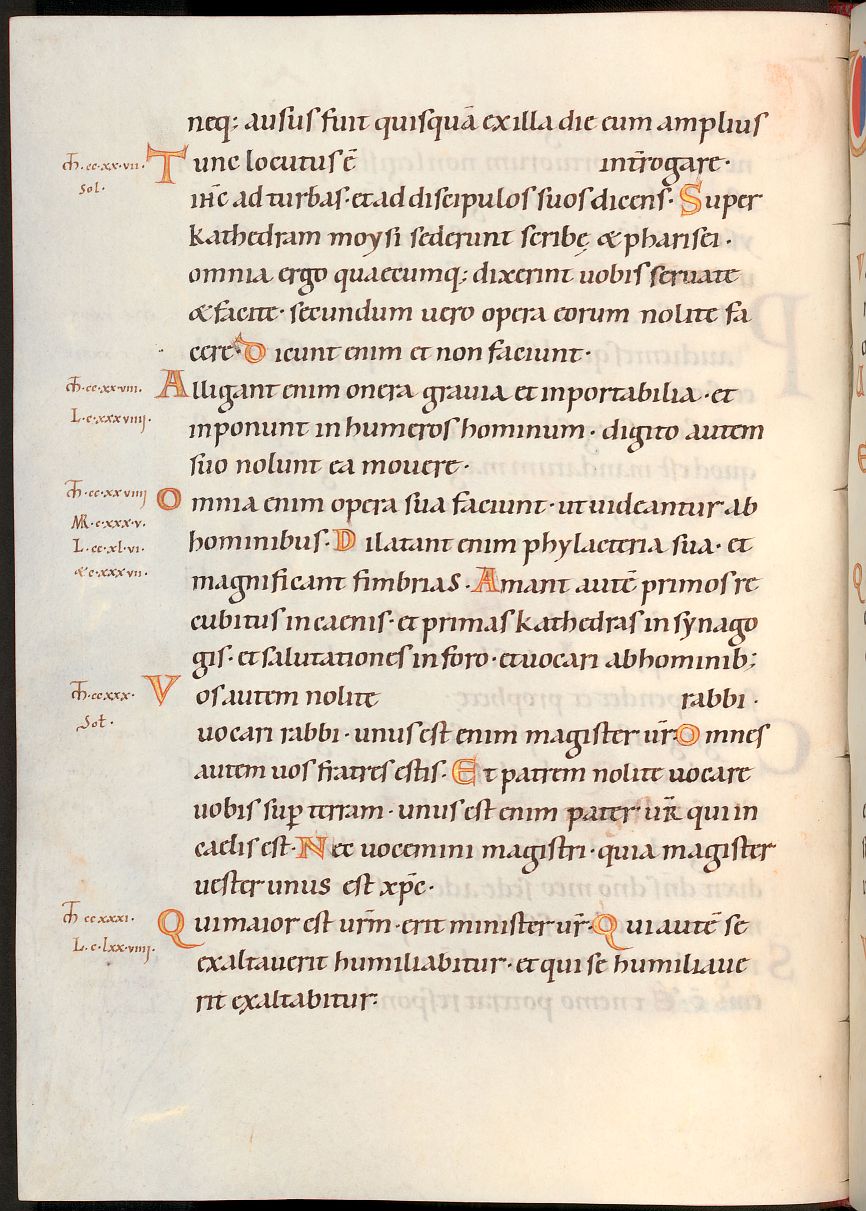 neq; ausus fuit quisquā ex illa die eum amplius
Tunc locutus ē introgare·
ih̄c ad turbas· et ad discipulos suos dicens· Super
kathedram moysi sederunt scribę & pharisei·
omnia ergo quaecumq; dixerint uobis seruate
& facite· secundum uero opera eorum nolite fa
cere· Dicunt enim et non faciunt·
Alligant enim onera gravia et inportabilia· et
inponunt in humeros hominum· digito autem
suo nolunt ea mouere·
Omnia enim opera sua faciunt· ut uideantur ab
hominibus· Dilatant enim phylacteria sua· et
magnificant fimbrias· Amant autē primos re
cubitus in caenis· et primas kathedras in synago
gis· et salutationes in foro· et uocari ab hominib;
Vos autem nolite rabbi·
uocari rabbi· unus est enim magister ur̄· Omnes
autem uos fratres estis· Et patrem nolite uocare
uobis sup terram· unus est enim pater ur̄ qui in
caelis est· Nec uocemini magistri· quia magister
uester unus est xp̄c·
Qui maior est urm̄· erit minister ur̄· Qui autē se
exaltauerit humiliabitur· et qui se humiliaue
rit exaltabitur·
m̄h·cc·xx·vii·
sol·
m̄h·cc·xxviii·
L·c·xxxviiii·
m̄h·cc·xxviiii
MR·c·xxx·v·
L·cc·xl·vi·
&c·xxx·vii·
m̄h·ccxxx·
Sol·
m̄h ccxxxi·
L·c·lxx·viiii·